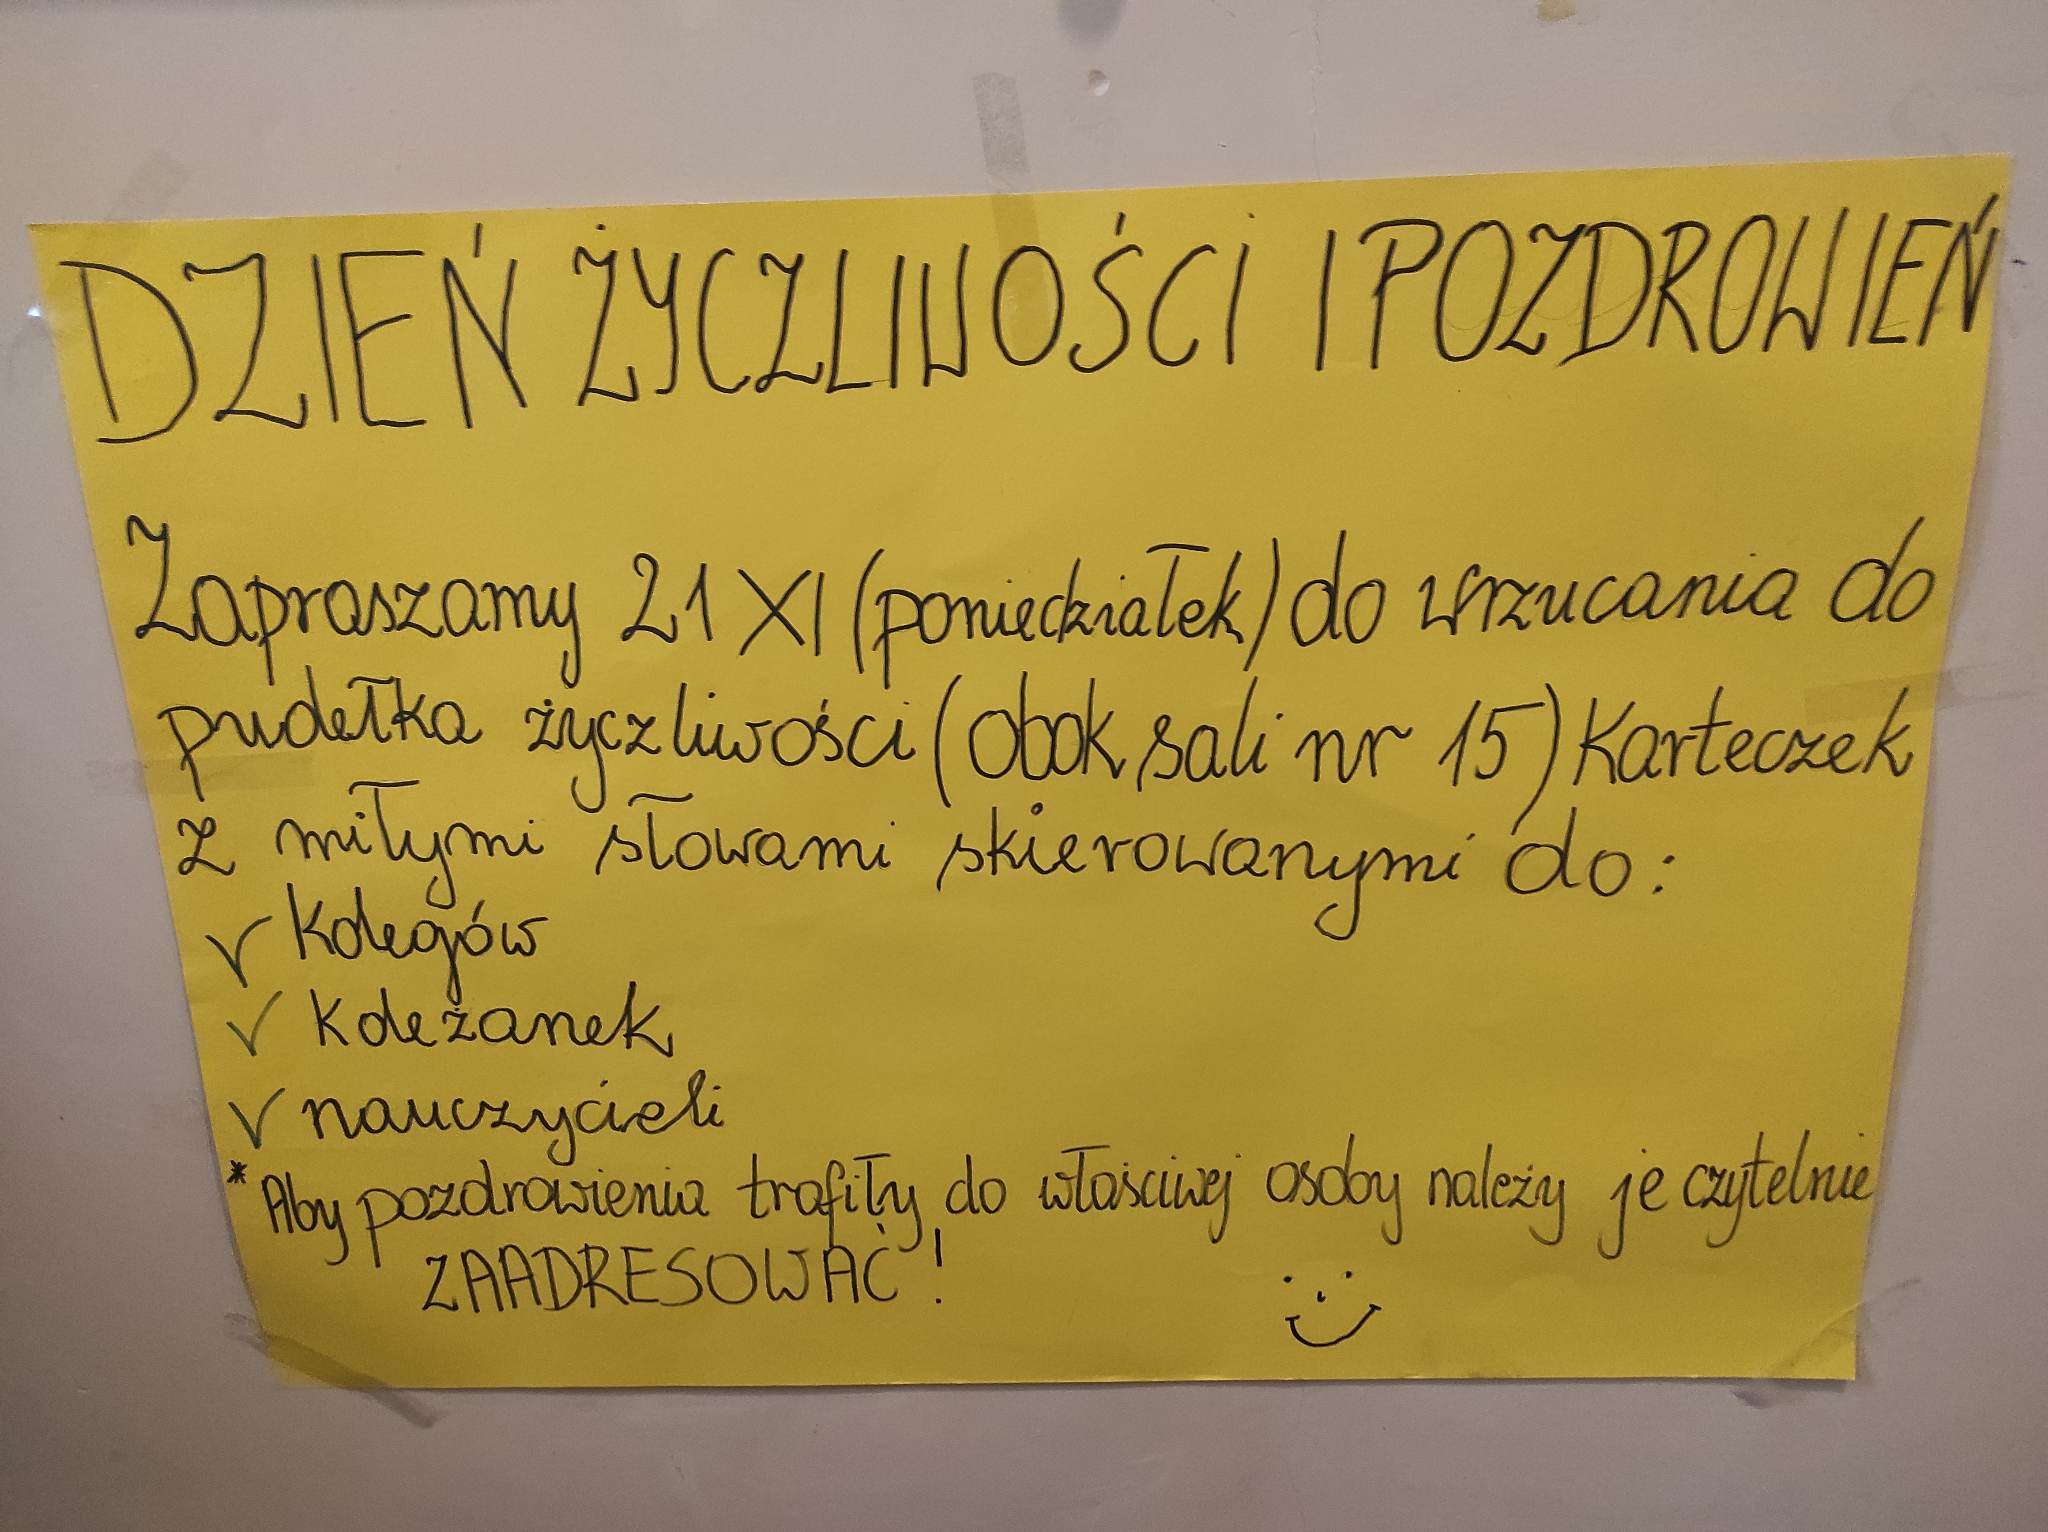 DZIEŃ ŻYCZLIWOŚCI I POZDROWIEŃ
Zapraszamy 21 XI (poniedziałek) do wrzucania do
pudełka życzliwości (obok sali nr 15) Karteczek
z miłymi słowami skierowanymi do:
✓ Kolegów
✓ Koleżanek
✓ nauczycieli
* Aby pozdrowienia trafiły do właściwej osoby należy je czytelnie
ZAADRESOWAĆ!